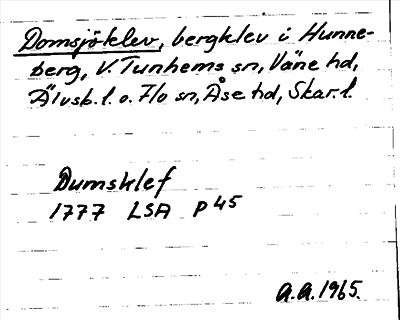 Domsjöklev, bergklev i Hunne-
berg, V. Tunhems sn, Väne hd,
Älvsb. l. o. Flo sn, Åse hd, Skar. l.
Dumsklef
1777 LSA P 45
A.A. 1965.